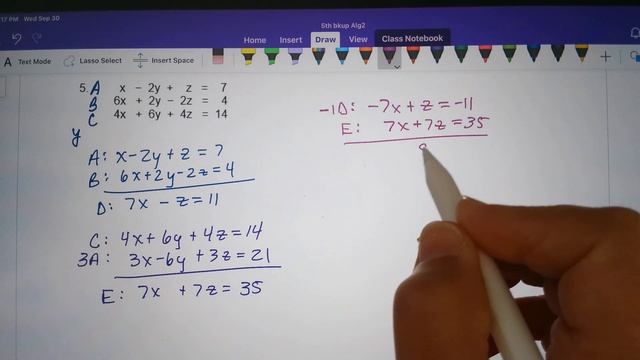 :17 PM Wed Sep 30
5th bkup Alg2
Home Insert Draw View Class Notebook
A Text Mode Lasso Select Insert Space
5. A x − 2y + z = 7
B 6x + 2y − 2z = 4
C 4x + 6y + 4z = 14
y
A: x-2y+z=7
B: 6x+2y-2z=4
D: 7x - z=11
C: 4x+6y+4z=14
3A: 3x-6y+3z=21
E: 7x +7z=35
-1D: -7x+z=-11
E: 7x+7z=35